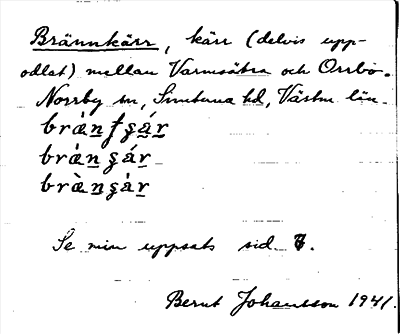 Brännkärr, kärr (delvis upp-
odlat) mellan Varmsätra och Orrbo.
Norrby sn, Simtuna hd, Västm. län.
brànʃşár
bràn şár
bràn şàr
Se min uppsats sid. 7.
Bernt Johansson 1941.